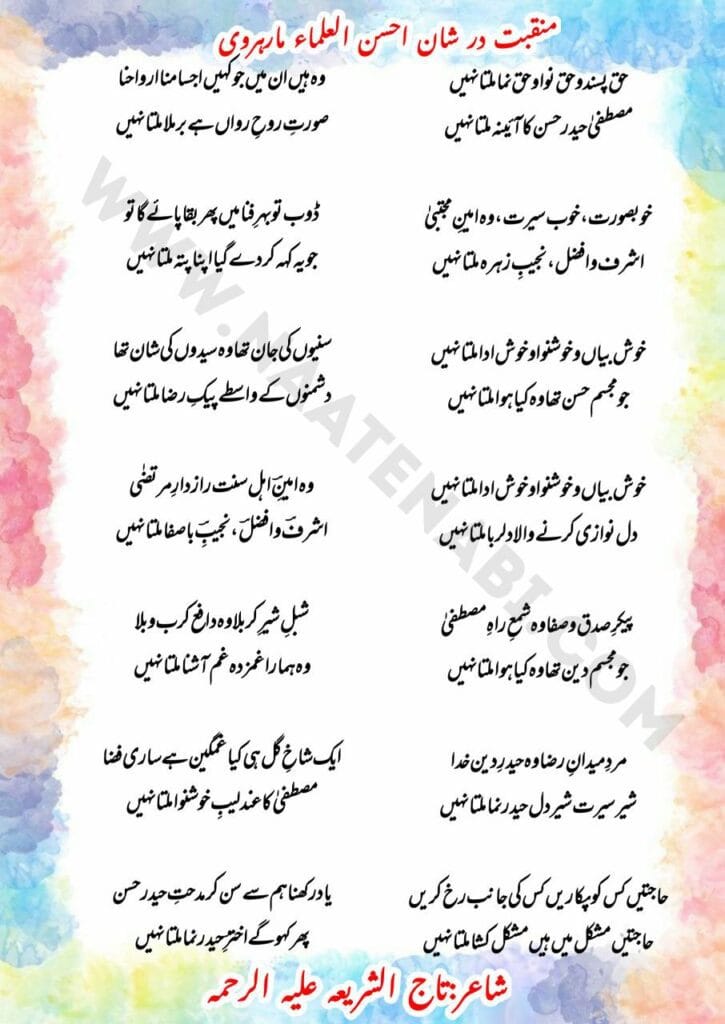 منقبت در شان احسن العلماء مارہروی
حق پسند و حق نوا و حق نما ملتا نہیں
مصطفیٰ حیدر حسن کا آئینہ ملتا نہیں
خوبصورت، خوب سیرت، وہ امینِ مجتبیٰ
اشرف و افضل، نجیبِ زہرہ ملتا نہیں
خوش بیاں و خوشنوا و خوش ادا ملتا نہیں
جو مجسم حسن تھا وہ کیا ہوا ملتا نہیں
خوش بیاں و خوشنوا و خوش ادا ملتا نہیں
دل نوازی کرنے والا دلربا ملتا نہیں
پیکرِ صدق و صفا وہ شمعِ راہِ مصطفیٰ
جو مجسم دین تھا وہ کیا ہوا ملتا نہیں
مردِ میدانِ رضا وہ حیدرِ دین خدا
شیر سیرت شیر دل حیدر نما ملتا نہیں
حاجتیں کس کو پکاریں کس کی جانب رخ کریں
حاجتیں مشکل میں ہیں مشکل کشا ملتا نہیں
وہ ہیں ان میں جو کہیں اجسامنا ارواحنا
صورتِ روحِ رواں ہے برملا ملتا نہیں
ڈوب تو بہرِ فنا میں پھر بقا پائے گا تو
جو یہ کہہ کر دے گیا اپنا پتہ ملتا نہیں
سنیوں کی جان تھا وہ سیدوں کی شان تھا
دشمنوں کے واسطے پیکِ رضا ملتا نہیں
وہ امینؔ اہل سنت راز دارِ مرتضٰی
اشرفؔ و افضلؔ، نجیبؔ باصفا ملتا نہیں
شبلِ شیرِ کربلا وہ دافع کرب و بلا
وہ ہمارا غمزدہ غم آشنا ملتا نہیں
ایک شاخِ گل ہی کیا غمگین ہے ساری فضا
مصطفیٰ کا عندلیبِ خوشنوا ملتا نہیں
یاد رکھنا ہم سے سن کر مدحتِ حیدر حسن
پھر کہو گے اخترِ حیدر نما ملتا نہیں
شاعر: تاج الشریعہ علیہ الرحمہ
WWW.NAATENABI.COM